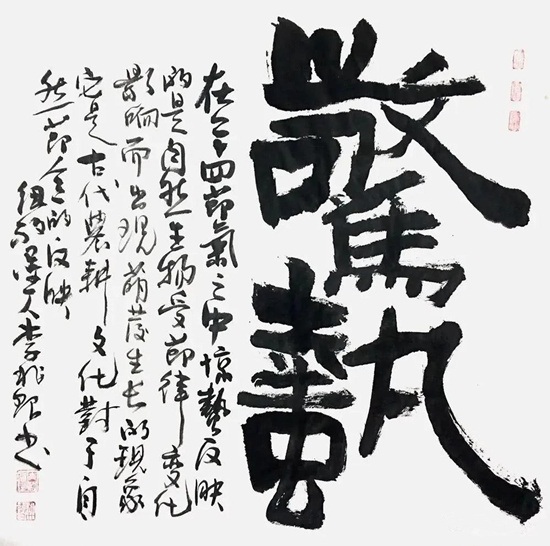 驚蟄
在二十四節氣之中惊蟄反映
的是自然生物受節律變化
影响而出現萌發生长的現象
它是古代農耕文化對于自
然節令的反映
纽约人李书